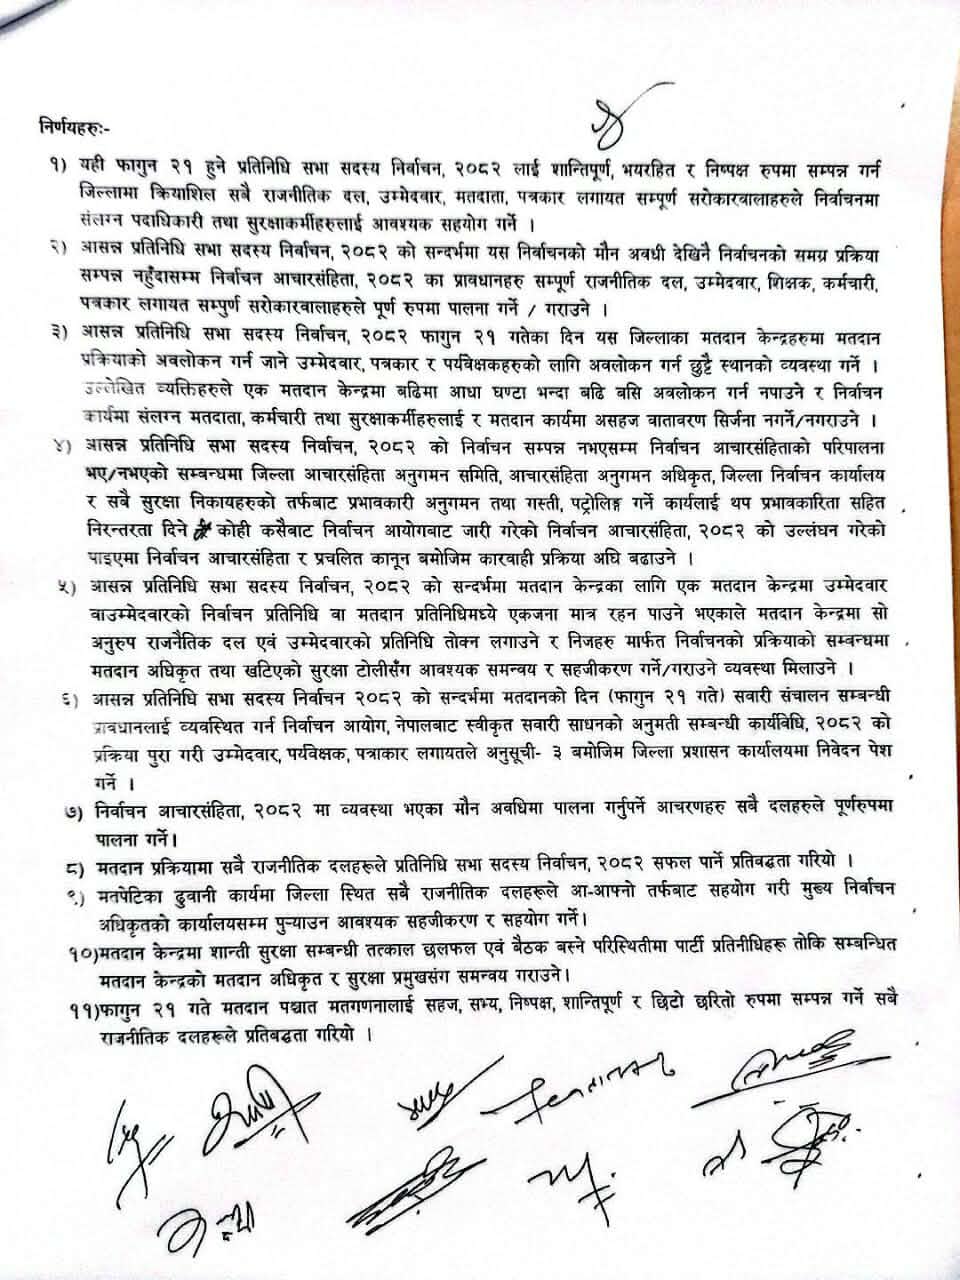 निर्णयहरुः-
१) यही फागुन २१ हुने प्रतिनिधि सभा सदस्य निर्वाचन, २०८२ लाई शान्तिपूर्ण, भयरहित र निष्पक्ष रुपमा सम्पन्न गर्न
जिल्लामा क्रियाशिल सबै राजनीतिक दल, उम्मेदवार, मतदाता, पत्रकार लगायत सम्पूर्ण सरोकारवालाहरुले निर्वाचनमा
संलग्न पदाधिकारी तथा सुरक्षाकर्मीहरुलाई आवश्यक सहयोग गर्ने ।
२) आसन्न प्रतिनिधि सभा सदस्य निर्वाचन, २०८२ को सन्दर्भमा यस निर्वाचनको मौन अवधी देखिनै निर्वाचनको समग्र प्रक्रिया
सम्पन्न नहुँदासम्म निर्वाचन आचारसंहिता, २०८२ का प्रावधानहरु सम्पूर्ण राजनीतिक दल, उम्मेदवार, शिक्षक, कर्मचारी,
पत्रकार लगायत सम्पुर्ण सरोकारवालाहरुले पूर्ण रुपमा पालना गर्ने / गराउने ।
३) आसन्न प्रतिनिधि सभा सदस्य निर्वाचन, २०८२ फागुन २१ गतेका दिन यस जिल्लाका मतदान केन्द्रहरुमा मतदान
प्रक्रियाको अवलोकन गर्न जाने उम्मेदवार, पत्रकार र पर्यवेक्षकहरुको लागि अवलोकन गर्न छुट्टै स्थानको व्यवस्था गर्ने ।
उल्लेखित व्यक्तिहरुले एक मतदान केन्द्रमा बढिमा आधा घण्टा भन्दा बढि बसि अवलोकन गर्न नपाउने र निर्वाचन
कार्यमा संलग्न मतदाता, कर्मचारी तथा सुरक्षाकर्मीहरुलाई र मतदान कार्यमा असहज वातावरण सिर्जना नगर्ने/नगराउने ।
४) आसन्न प्रतिनिधि सभा सदस्य निर्वाचन, २०८२ को निर्वाचन सम्पन्न नभएसम्म निर्वाचन आचारसंहिताको परिपालना
भए/नभएको सम्बन्धमा जिल्ला आचारसंहिता अनुगमन समिति, आचारसंहिता अनुगमन अधिकृत, जिल्ला निर्वाचन कार्यालय
र सबै सुरक्षा निकायहरुको तर्फबाट प्रभावकारी अनुगमन तथा गस्ती, पट्रोलिङ्ग गर्ने कार्यलाई थप प्रभावकारिता सहित
निरन्तरता दिने कोही कसैबाट निर्वाचन आयोगबाट जारी गरेको निर्वाचन आचारसंहिता, २०८२ को उल्लंघन गरेको
पाइएमा निर्वाचन आचारसंहिता र प्रचलित कानून बमोजिम कारवाही प्रक्रिया अघि बढाउने ।
५) आसन्न प्रतिनिधि सभा सदस्य निर्वाचन, २०८२ को सन्दर्भमा मतदान केन्द्रका लागि एक मतदान केन्द्रमा उम्मेदवार
वाउम्मेदवारको निर्वाचन प्रतिनिधि वा मतदान प्रतिनिधिमध्ये एकजना मात्र रहन पाउने भएकाले मतदान केन्द्रमा सो
अनुरुप राजनैतिक दल एवं उम्मेदवारको प्रतिनिधि तोक्न लगाउने र निजहरु मार्फत निर्वाचनको प्रक्रियाको सम्बन्धमा
मतदान अधिकृत तथा खटिएको सुरक्षा टोलीसँग आवश्यक समन्वय र सहजीकरण गर्ने/गराउने व्यवस्था मिलाउने ।
६) आसन्न प्रतिनिधि सभा सदस्य निर्वाचन २०८२ को सन्दर्भमा मतदानको दिन (फागुन २१ गते) सवारी संचालन सम्बन्धी
प्रावधानलाई व्यवस्थित गर्न निर्वाचन आयोग, नेपालबाट स्वीकृत सवारी साधनको अनुमती सम्बन्धी कार्यविधि, २०८२ को
प्रक्रिया पुरा गरी उम्मेदवार, पर्यवेक्षक, पत्राकार लगायतले अनुसूची- ३ बमोजिम जिल्ला प्रशासन कार्यालयमा निवेदन पेश
गर्ने ।
७) निर्वाचन आचारसंहिता, २०८२ मा व्यवस्था भएका मौन अवधिमा पालना गर्नुपर्ने आचरणहरु सबै दलहरुले पूर्णरुपमा
पालना गर्ने।
८) मतदान प्रक्रियामा सबै राजनीतिक दलहरूले प्रतिनिधि सभा सदस्य निर्वाचन, २०८२ सफल पार्ने प्रतिबद्धता गरियो ।
९) मतपेटिका ढुवानी कार्यमा जिल्ला स्थित सबै राजनीतिक दलहरूले आ-आफ्नो तर्फबाट सहयोग गरी मुख्य निर्वाचन
अधिकृतको कार्यालयसम्म पुर्‍याउन आवश्यक सहजीकरण र सहयोग गर्ने।
१०)मतदान केन्द्रमा शान्ती सुरक्षा सम्बन्धी तत्काल छलफल एवं बैठक बस्ने परिस्थितीमा पार्टी प्रतिनीधिहरू तोकि सम्बन्धित
मतदान केन्द्रको मतदान अधिकृत र सुरक्षा प्रमुखसंग समन्वय गराउने।
११)फागुन २१ गते मतदान पश्चात मतगणनालाई सहज, सभ्य, निष्पक्ष, शान्तिपूर्ण र छिटो छरितो रुपमा सम्पन्न गर्ने सबै
राजनीतिक दलहरूले प्रतिबद्धता गरियो ।